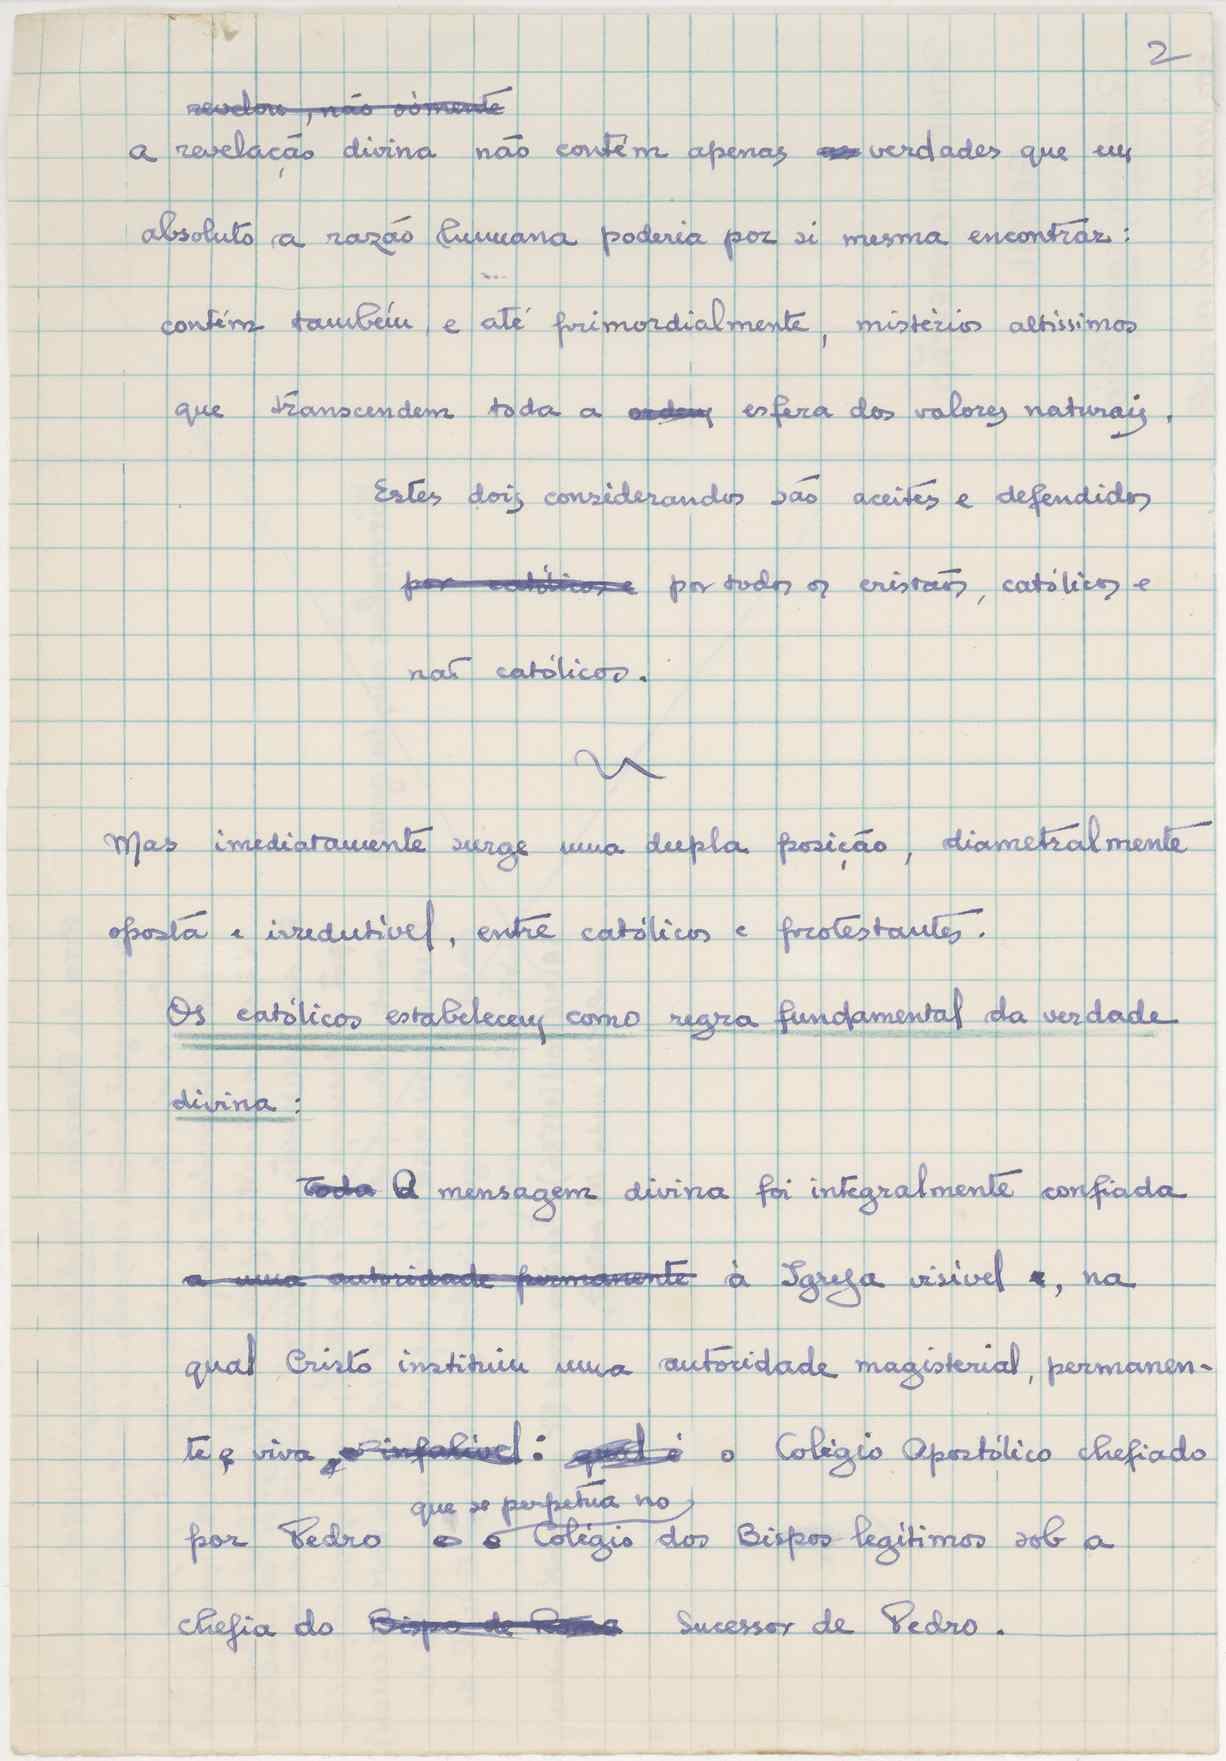 2
revelou, não sòmente
a revelação divina não contém apenas as verdades que em
absoluto a razão humana poderia por si mesma encontrar:
contém também, e até primordialmente, mistérios altíssimos
que transcendem toda a ordem esfera dos valores naturais.
Estes dois considerandos são aceites e defendidos
por católicos e por todos os cristãos, católicos e
não católicos.
Mas imediatamente surge uma dupla posição, diametralmente
oposta e irredutível, entre católicos e protestantes.
Os católicos estabelecem como regra fundamental da verdade
divina:
Toda A mensagem divina foi integralmente confiada
a uma autoridade permanente à Igreja visível e, na
qual Cristo instituiu uma autoridade magisterial, permanen-
te e viva, e infalível: qual é o Colégio Apostólico chefiado
que se perpetúa no
por Pedro e o Colégio dos Bispos legítimos sob a
chefia do Bispo de Roma Sucessor de Pedro.